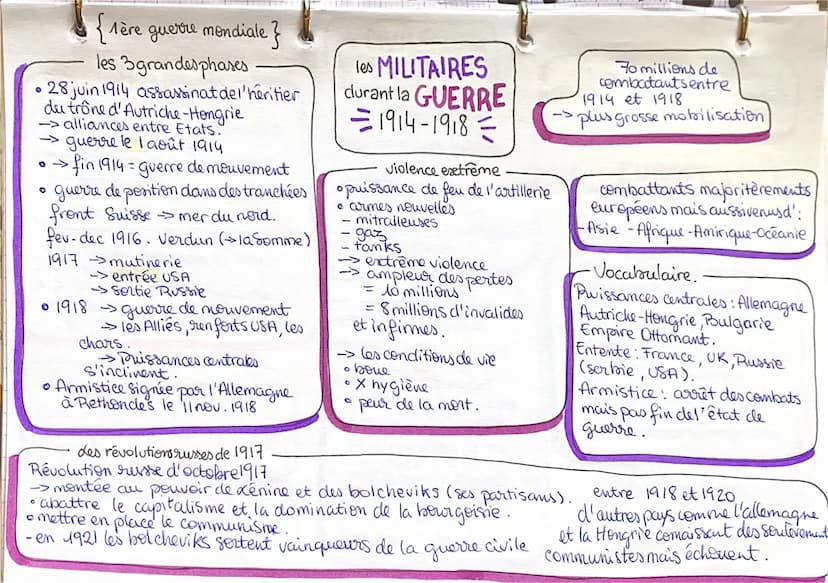 {1ère guerre mondiale}
les 3 grandes phases
• 28 juin 1914 assassinat de l'héritier
du trône d'Autriche-Hongrie
→ alliances entre Etats.
→ guerre le 1 août 1914
• → fin 1914 = guerre de mouvement
• guerre de position dans des tranchées
front Suisse → mer du nord.
fev-dec 1916. Verdun (→ la Somme)
1917 → mutinerie
→ entrée USA
→ sortie Russie
• 1918 → guerre de mouvement
→ les Alliés, renforts USA, les
chars.
→ Puissances centrales
s'inclinent.
• Armistice signée par l'Allemagne
à Rethondes le 11 nov. 1918
les MILITAIRES
durant la GUERRE
1914-1918
violence extrême
• puissance de feu de l'artillerie
• armes nouvelles
- mitralleuses
- gaz
- tanks
→ extrême violence
→ ampleur des pertes
= 10 millions
= 8 millions d'invalides
et infirmes.
→ les conditions de vie
• boue
• X hygiène
• peur de la mort.
70 millions de
combatants entre
1914 et 1918
→ plus grosse mobilisation
combattants majoritèrements
européens mais aussi venus d':
- Asie - Afrique - Amirique - Océanie
Vocabulaire.
Puissances centrales : Allemagne
Autriche-Hongrie, Bulgarie
Empire Ottomant.
Entente : France, UK, Russie
(serbie, USA).
Armistice : arrêt des combats
mais pas fin de l'état de
guerre.
Les révolutions russes de 1917
Révolution russe d'octobre 1917
→ montée au pouvoir de Lénine et des bolcheviks (ses partisans).
• abattre le capitalisme et la domination de la bourgeoisie.
• mettre en place le communisme.
- en 1921 les bolcheviks sortent vainqueurs de la guerre civile
entre 1918 et 1920
d'autres pays comme l'allemagne
et la Hongrie connaissant des soulèvement
communistes mais échouent.